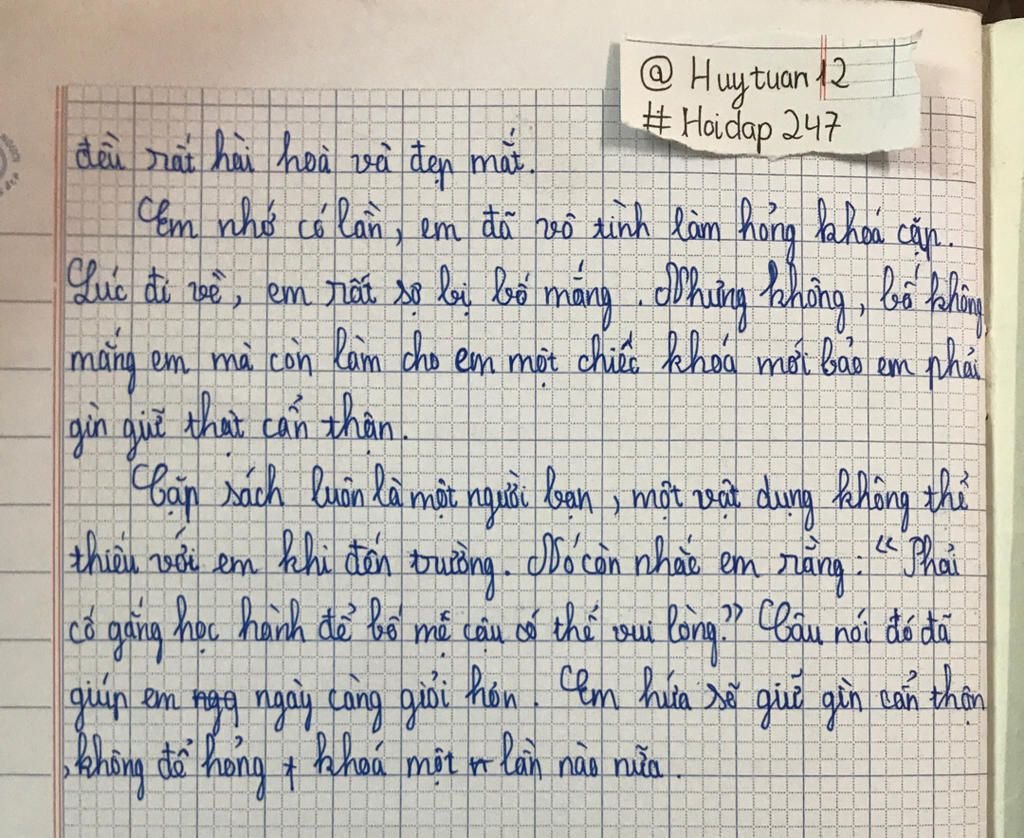 @ Huytuan12
# Hoidap 247
đều rất hài hoà và đẹp mắt.
Em nhớ có lần, em đã vô tình làm hỏng khoá cặp.
Lúc đi về, em rất sợ bị bố mắng. Nhưng không, bố không
mắng em mà còn làm cho em một chiếc khoá mới bảo em phải
gìn giữ thật cẩn thận.
Cặp sách luôn là một người bạn, một vật dụng không thể
thiếu với em khi đến trường. Nó còn nhắc em rằng: “Phải
cố gắng học hành để bố mẹ cậu có thể vui lòng.” Câu nói đó đã
giúp em ngày càng giỏi hơn. Em hứa sẽ giữ gìn cẩn thận
, không để hỏng khoá một lần nào nữa.